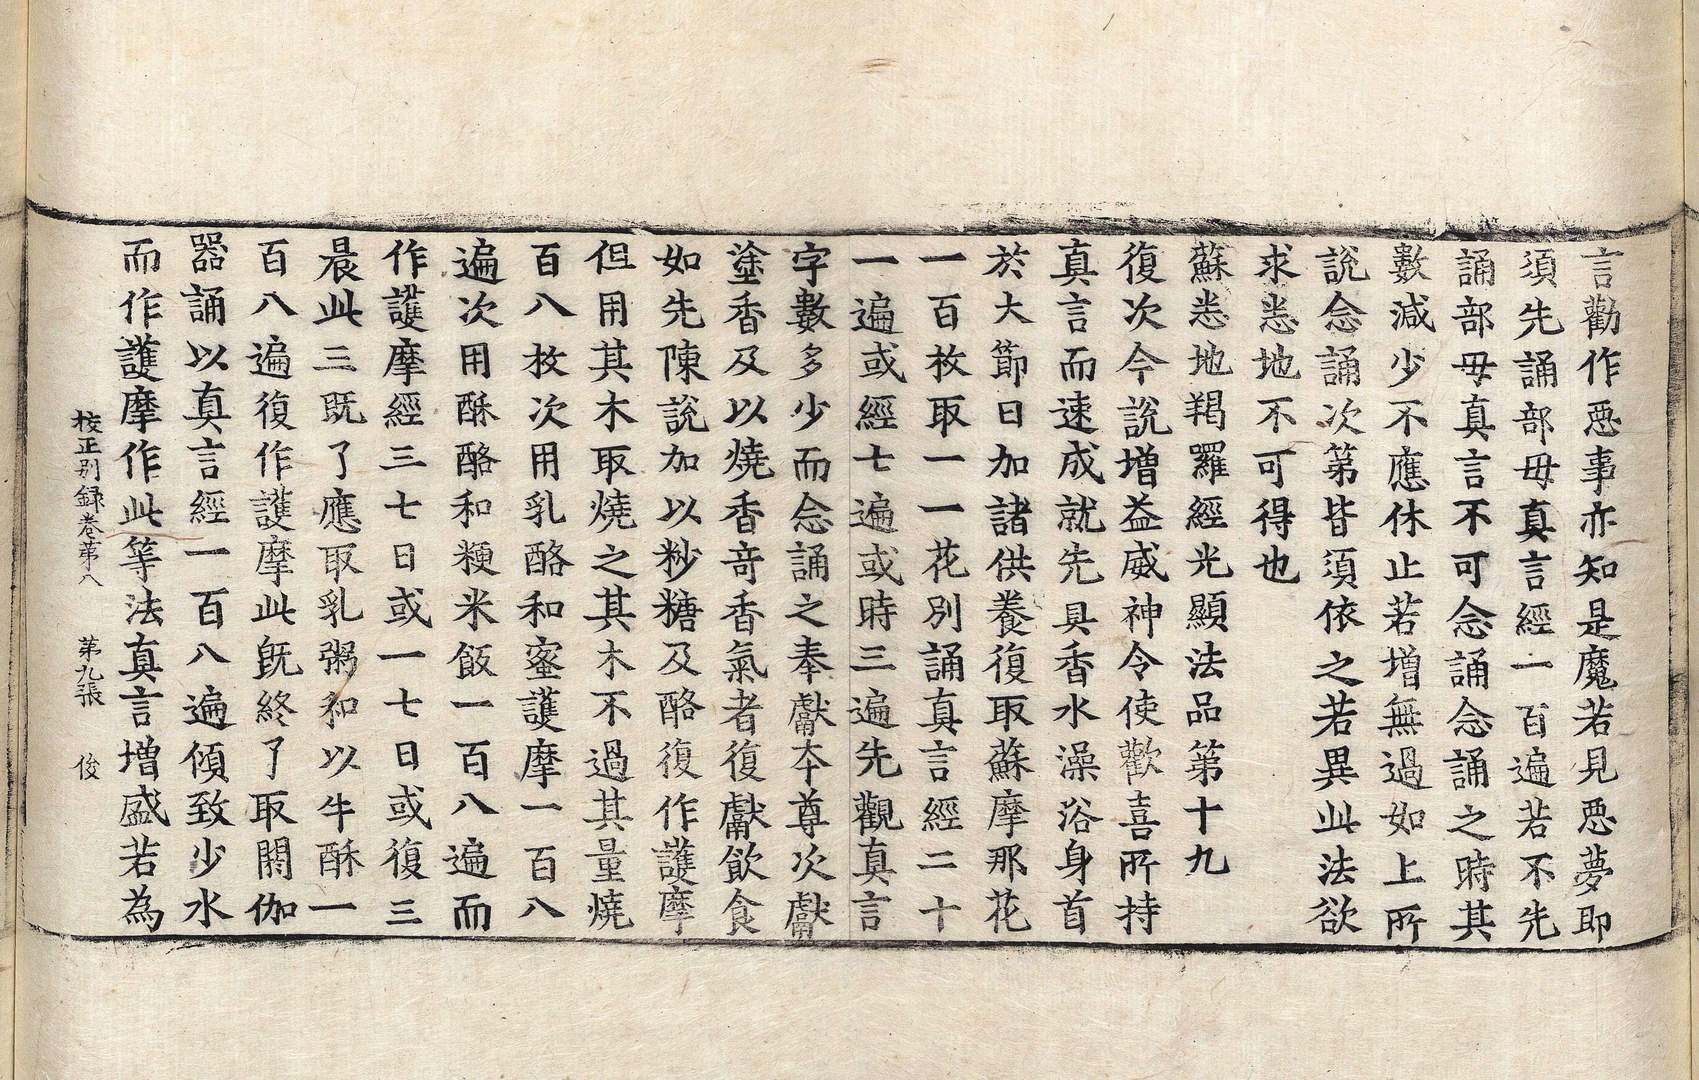 言勸作惡事亦知是魔若見惡夢即
須先誦部母真言經一百遍若不先
誦部母真言不可念誦念誦之時其
數減少不應休止若增無過如上所
說念誦次第皆須依之若異此法欲
求悉地不可得也
蘇悉地羯羅經光顯法品第十九
復次今說增益威神令使歡喜所持
真言而速成就先具香水澡浴身首
於大節日加諸供養復取蘇摩那花
一百枚取一一花別誦真言經二十
一遍或經七遍或時三遍先觀真言
字數多少而念誦之奉獻本尊次獻
塗香及以燒香奇香氣者復獻飲食
如先陳說加以粆糖及酪復作護摩
但用其木取燒之其木不過其量燒
百八枚次用乳酪和蜜護摩一百八
遍次用酥酪和粳米飯一百八遍而
作護摩經三七日或一七日或復三
晨此三既了應取乳粥和以牛酥一
百八遍復作護摩此既終了取閼伽
器誦以真言經一百八遍傾致少水
而作護摩作此等法真言增盛若為
校正别録卷第八 第九張 俊